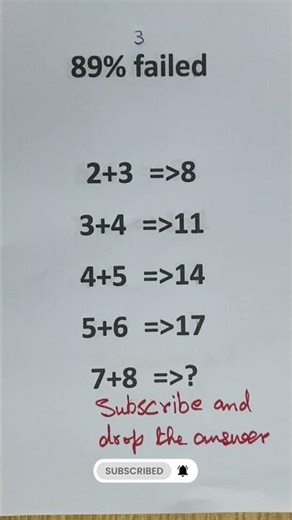 3
89% failed
2+3 =>8
3+4 =>11
4+5 =>14
5+6 =>17
7+8 =>?
Subscribe and
drop the answer
SUBSCRIBED